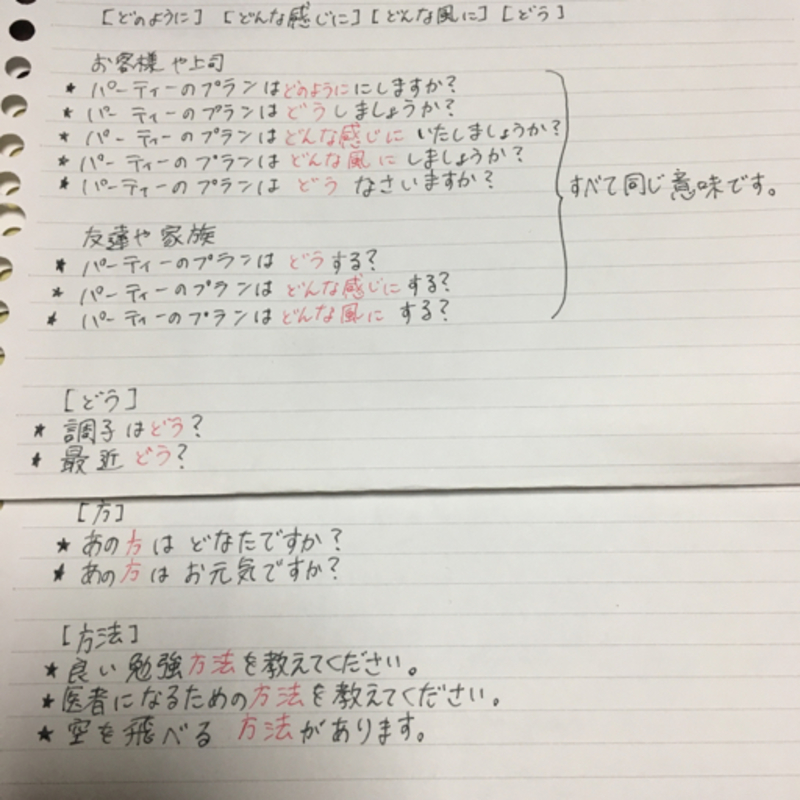 [どのように] [どんな感じに] [どんな風に] [どう]
お客様や上司
* パーティーのプランはどのようににしますか?
* パーティーのプランは どうしましょうか?
* パーティーのプランはどんな感じに いたしましょうか?
* パーティーのプランは どんな風に しましょうか?
* パーティーのプランは どう なさいますか?
すべて同じ意味です。
友達や家族
* パーティーのプランは どうする?
* パーティーのプランは どんな感じにする?
* パーティーのプランは どんな風に する?
[どう]
* 調子はどう?
* 最近 どう?
[方]
* あの方は どなたですか?
* あの方は お元気ですか?
[方法]
* 良い勉強方法を教えてください。
* 医者になるための方法を教えてください。
* 空を飛べる 方法があります。